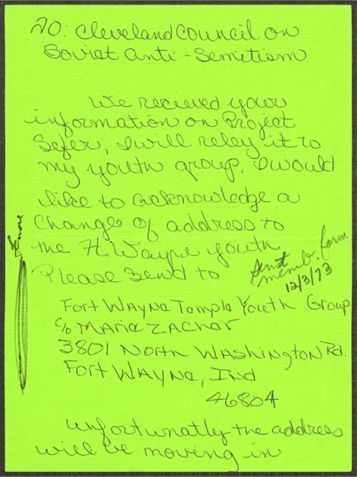 TO: Cleveland Council on
Soviet Anti-Semitism
We recieved your
information on Project
Sefer, I will relay it to
my youth group. I would
like to acknowledge a
Change of address to
the Ft. Wayne youth
Please send to
sent
memb. form
12/3/73
Fort Wayne Temple Youth Group
c/o Marie Zachar
3801 North Washington Rd.
Fort Wayne, Ind
46804
unfortunatly the address
will be moving in